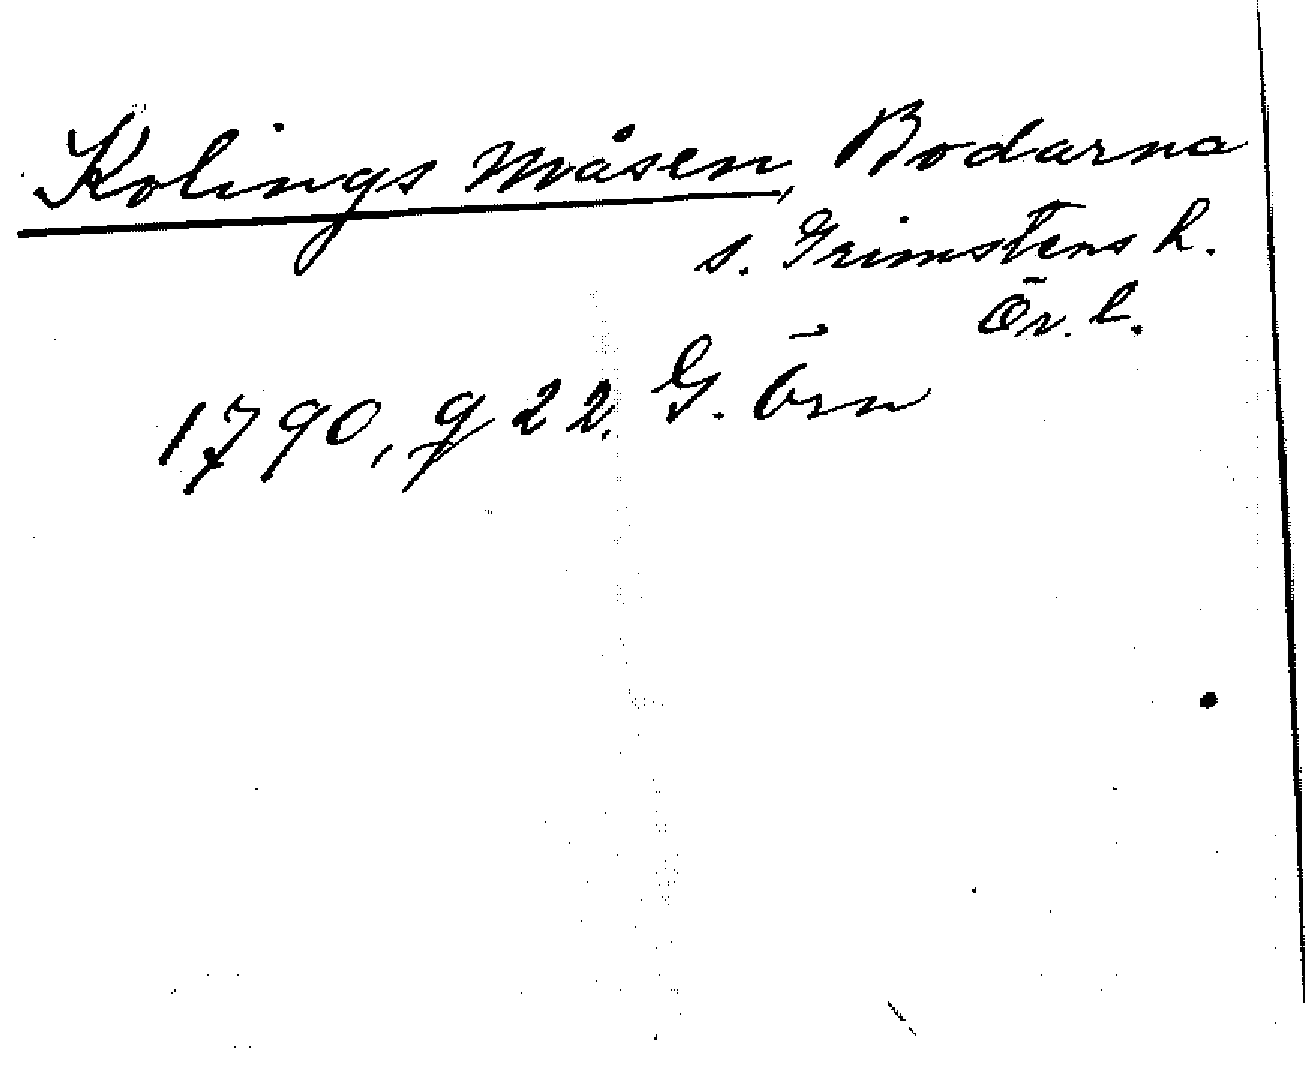 Kolings Måsen, Bodarna
s. Grimstens h.
Ör. l.
1790, g 22. G. Örn